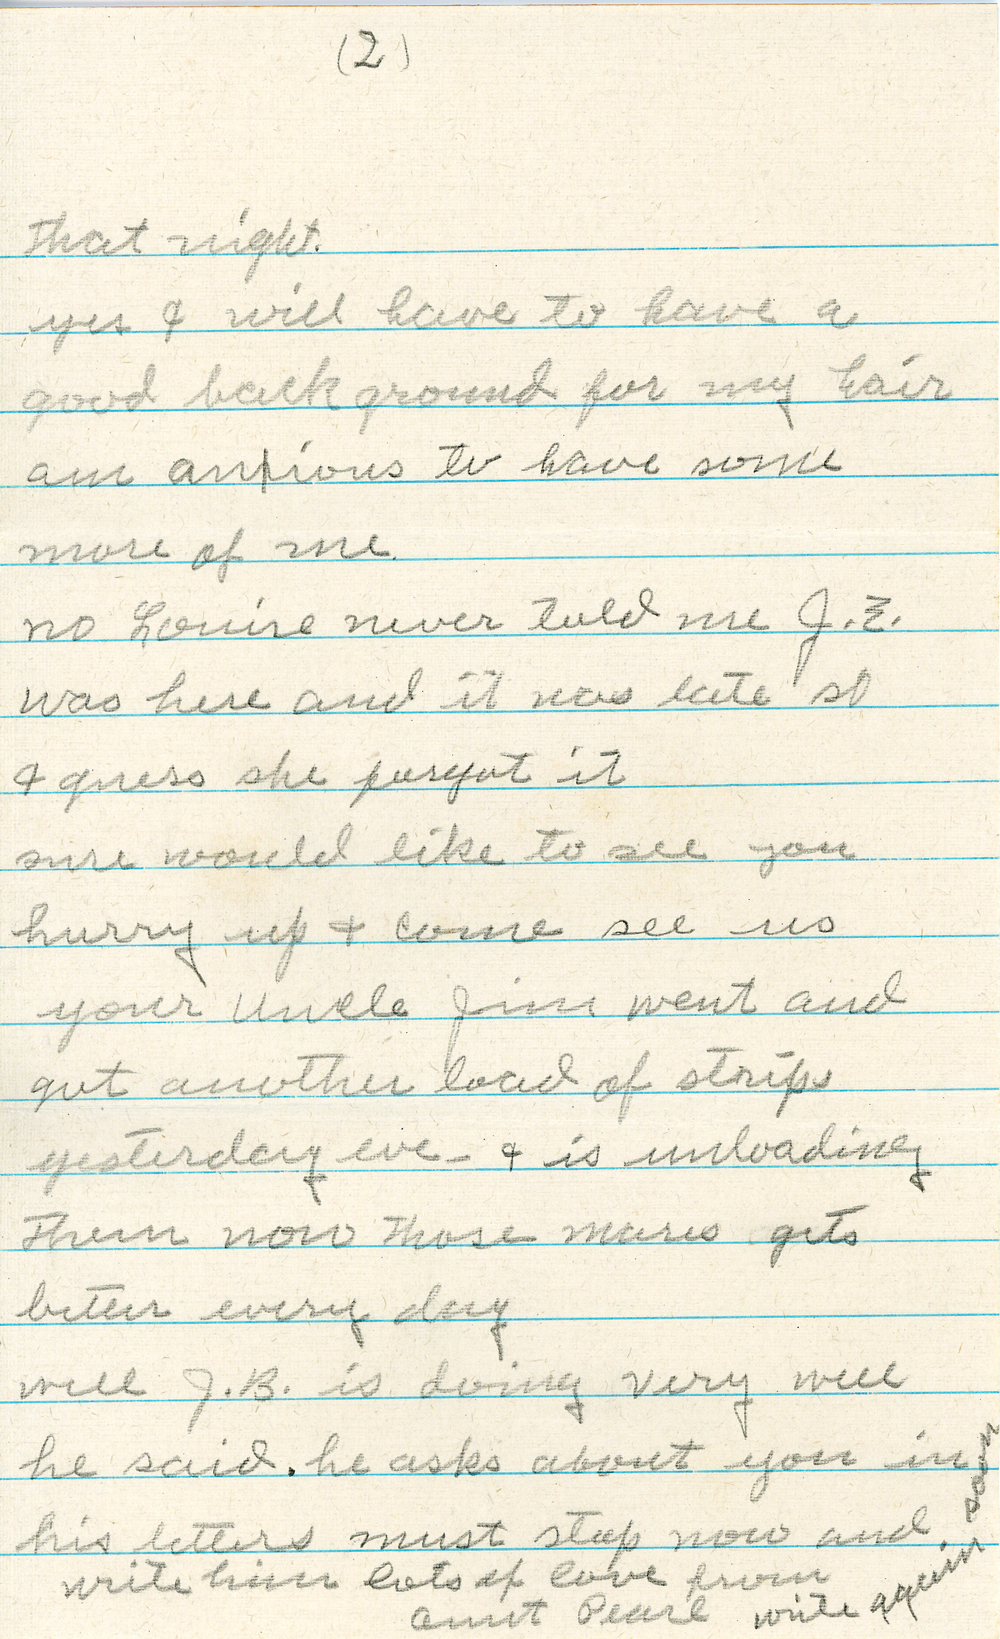 (2)
that night.
yes I will have to have a
good back ground for my hair
am anxious to have some
more of me.
no Louise never told me J.E.
was here and it was late so
I guess she forgot it
sure would like to see you
hurry up + come see us
your Uncle Jim went and
got another load of strips
yesterday eve - + is unloading
them now those mares gets
better every day
well J.B. is doing very well
he said. he asks about you in
his letters must stop now and
write him lots of love from
Aunt Pearl write again soon